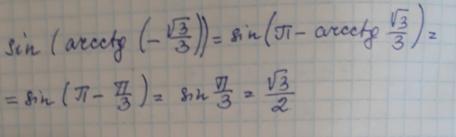 sin (arcctg (-√3/3)) = sin (π - arcctg √3/3) =
= sin (π - π/3) = sin π/3 = √3/2